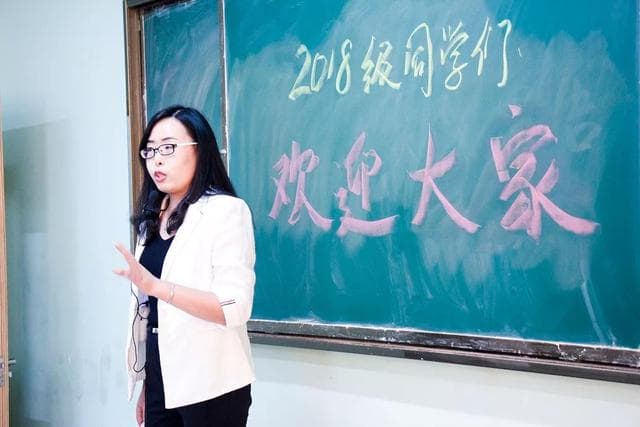 2018级同学们
欢迎大家